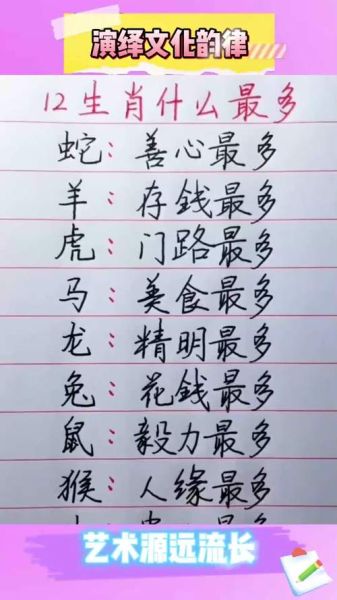 演绎文化韵律
12生肖什么最多
蛇：善心最多
羊：存銭最多
虎：门路最多
马：美食最多
龙：精明最多
兔：花銭最多
鼠：毅力最多
猴：人缘最多
艺术源远流长